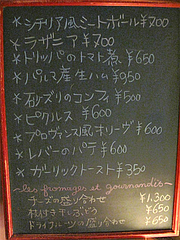 *シチリア風ミートボール¥700
*ラザーニア ¥700
*トリッパのトマト煮 ¥650
*パルマ産生ハム ¥950
*砂ズリのコンフィ ¥500
*ピクルス ¥600
*プロヴァンス風オリーヴ ¥600
*レバーのパテ ¥600
*ガーリックトースト ¥350
~les fromages et gourmandis~
チーズの盛り合わせ ¥1,300
枝付き干しぶどう ¥650
ドライフルーツの盛り合わせ ¥650